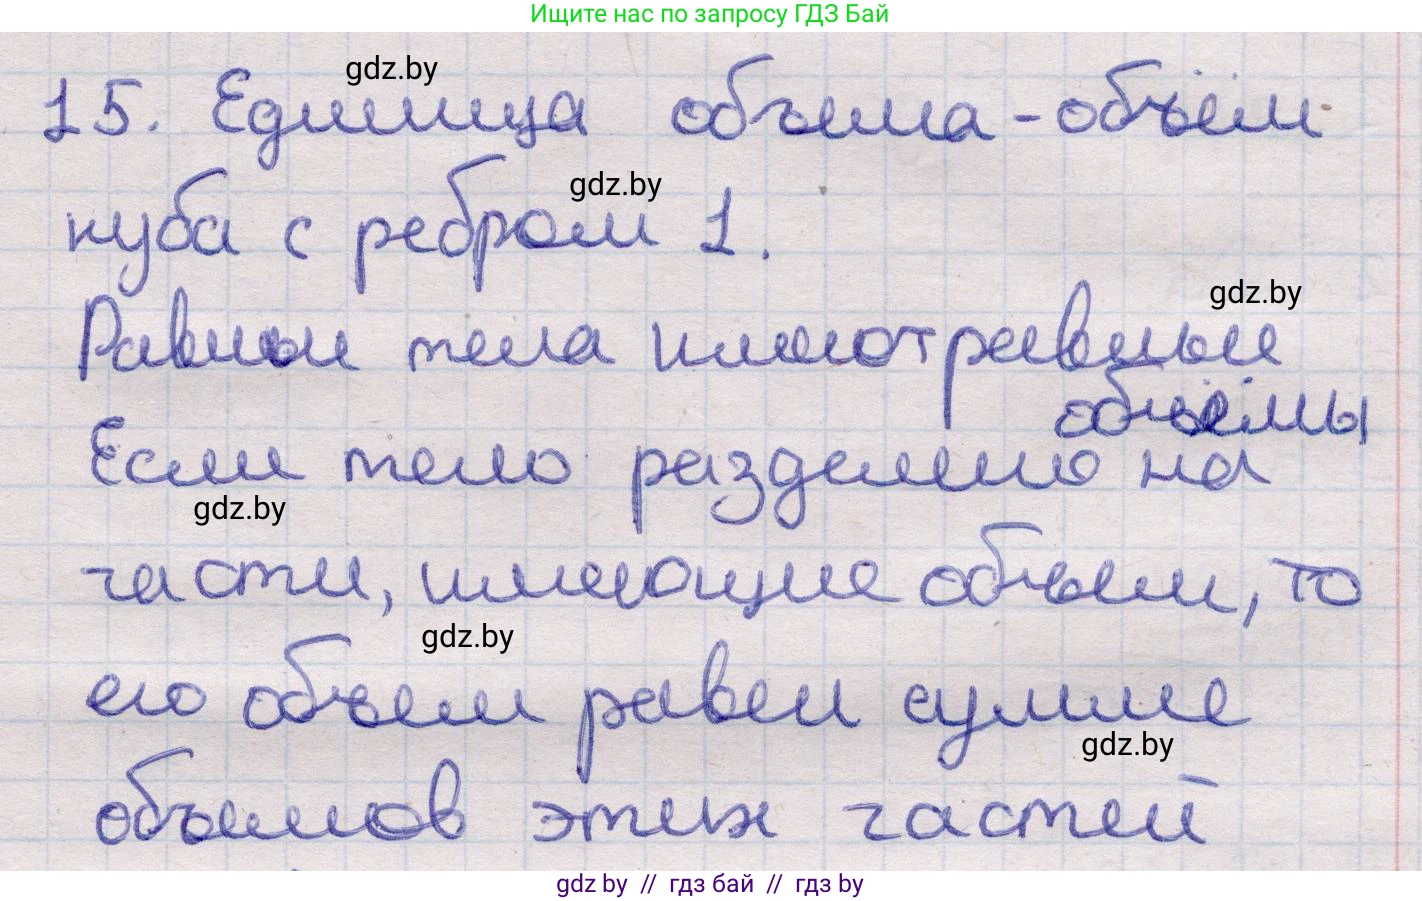 Ищите нас по запросу ГДЗ Бай
gdz.by
15. Единица объема - объём
gdz.by
куба с ребром 1.
gdz.by
Равные тела имеют равные
объёмы
Если тело разделено на
gdz.by
части, имеющие объем, то
gdz.by
его объем равен сумме
gdz.by
объемов этих частей
gdz by // гдз бай // гдз by